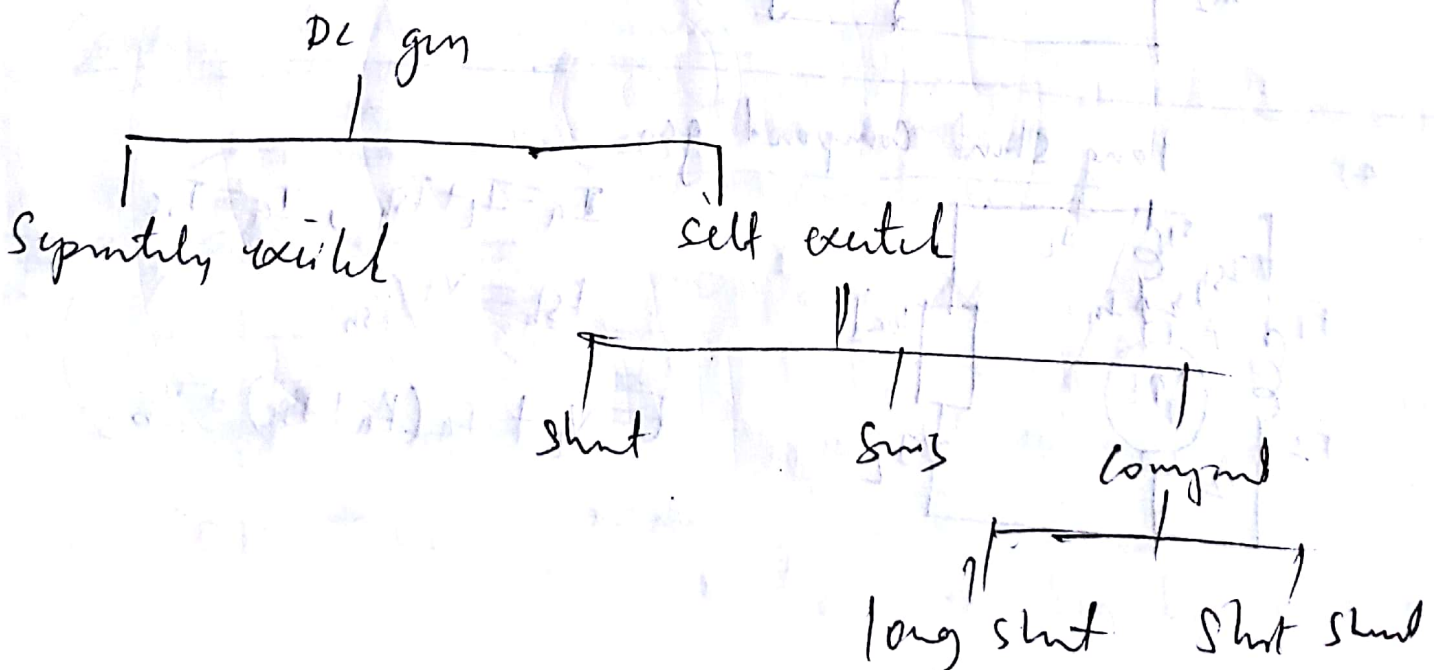 DC gen
Separately excited
self excited
shunt
Series
Compound
long shunt
Short shunt